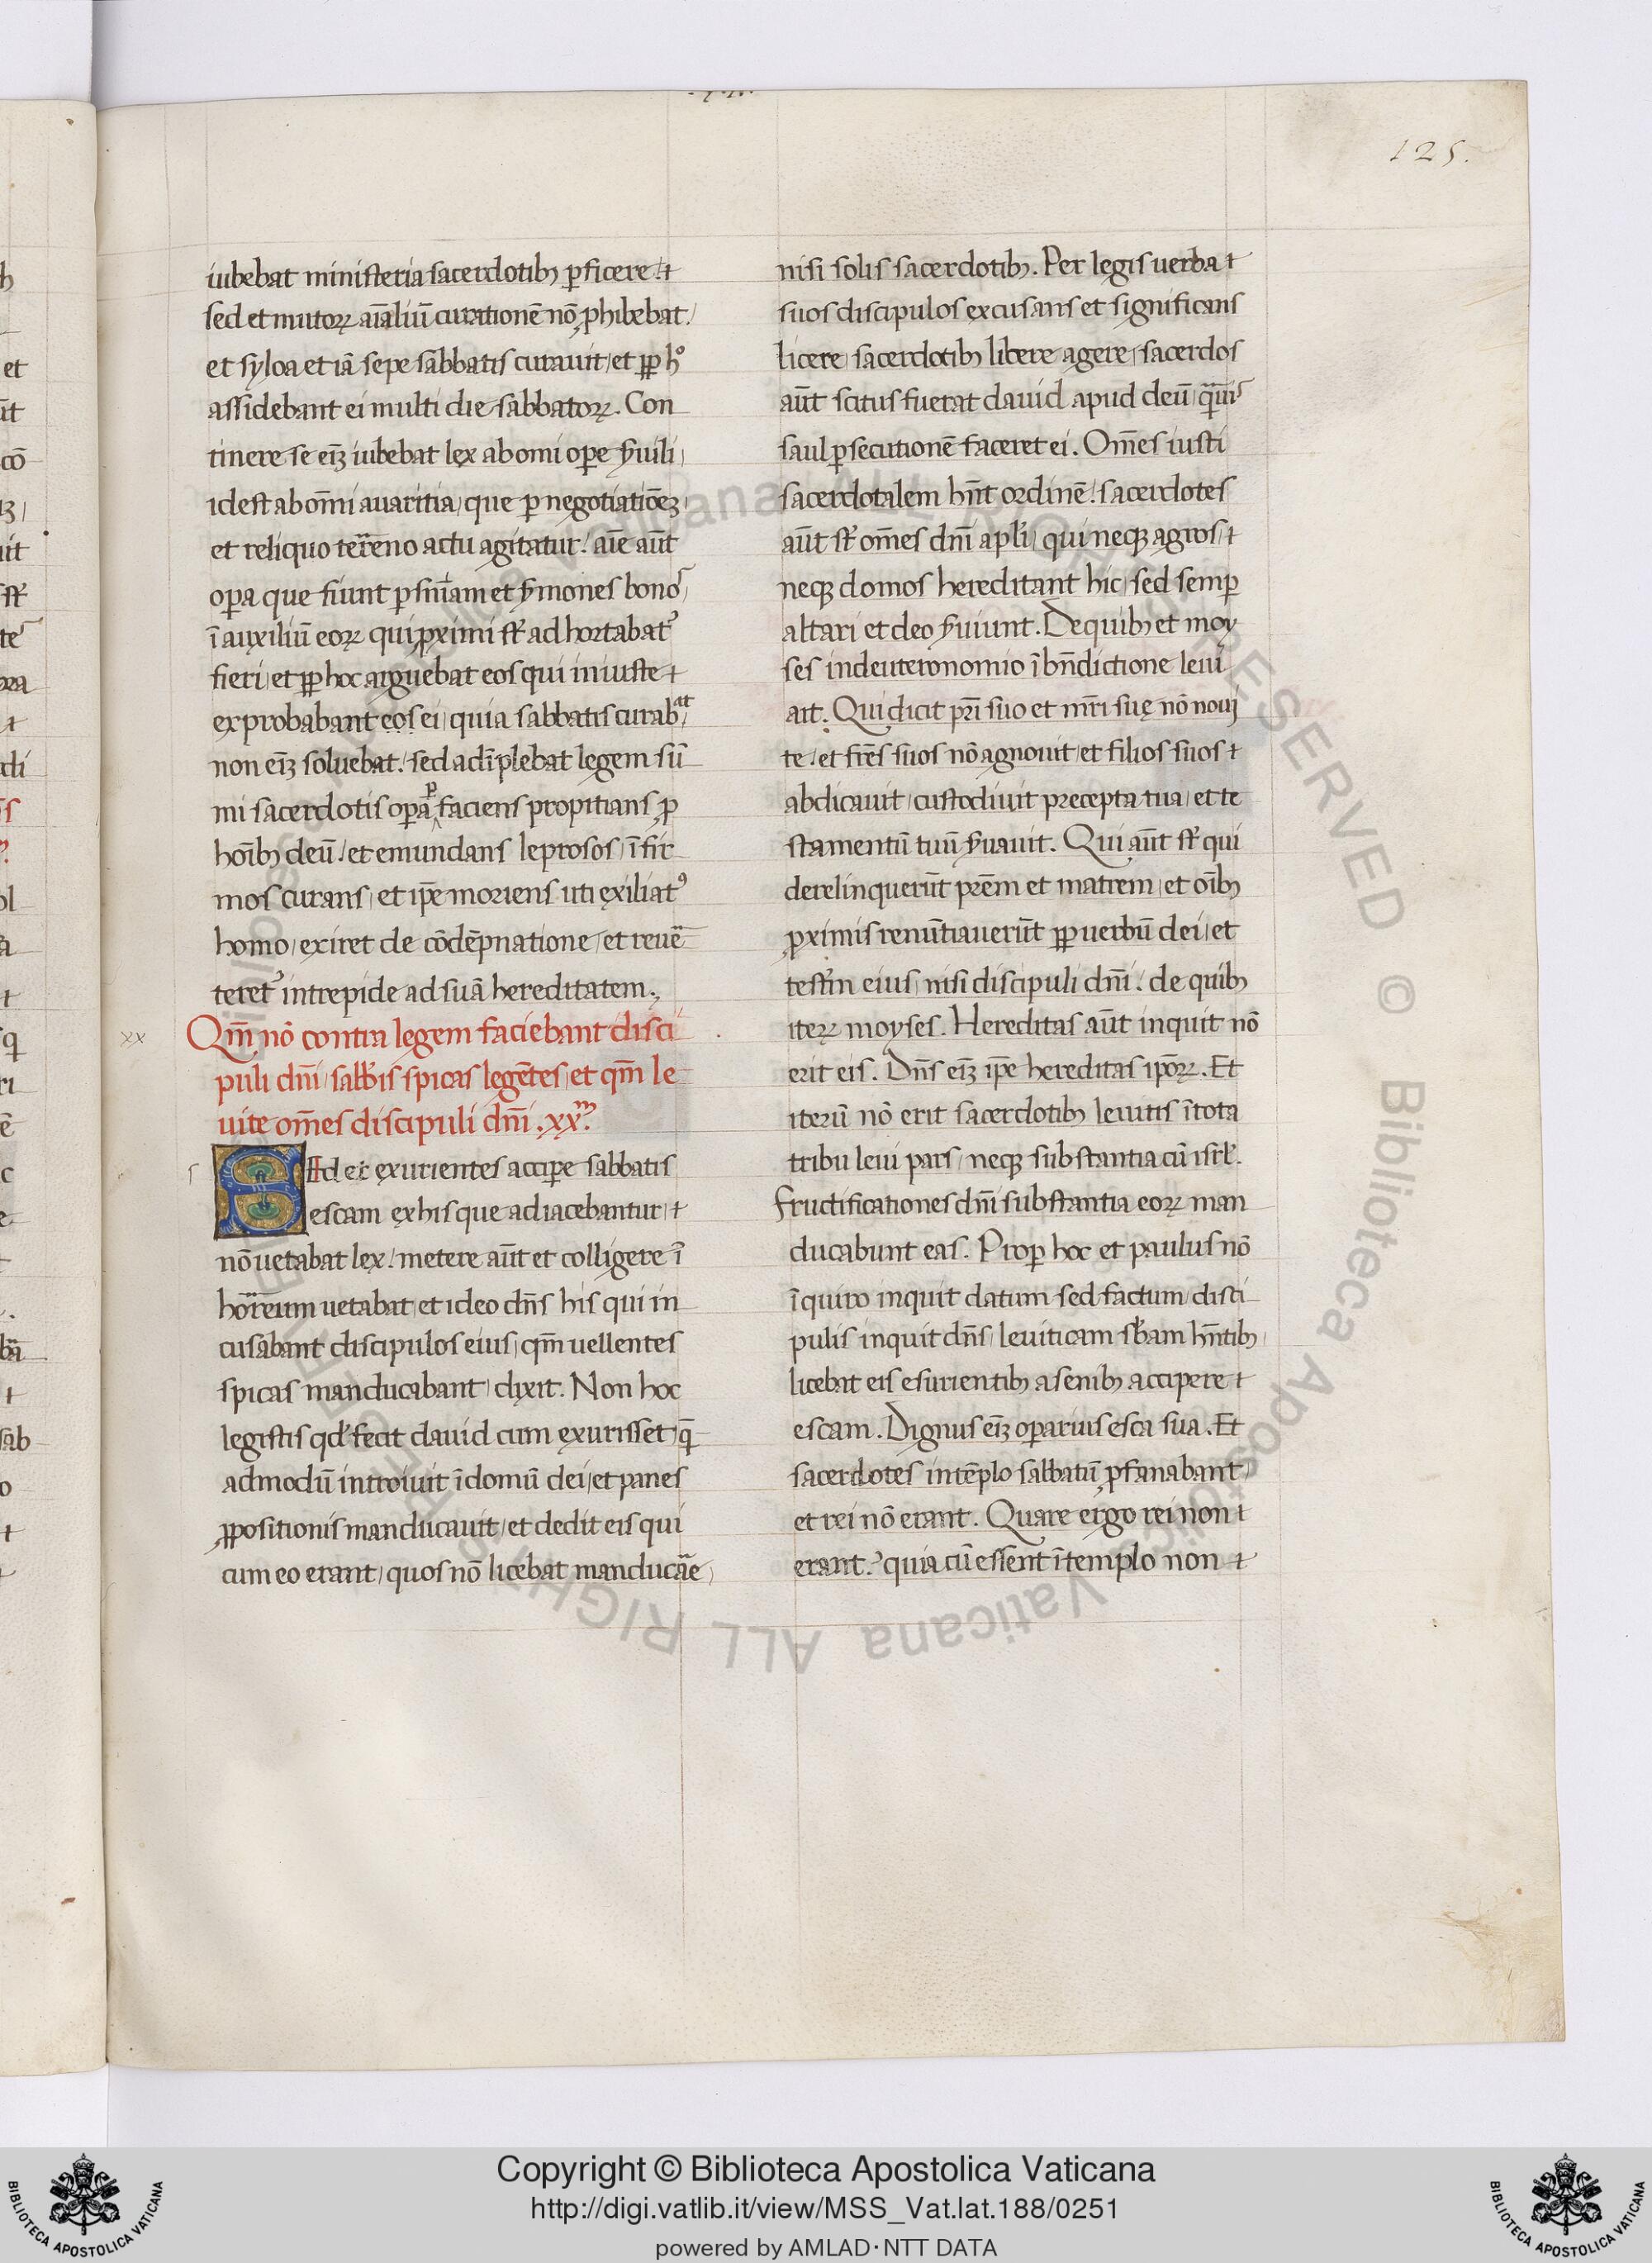 125.
iubebat ministeria sacerdotibꝫ ꝑficere ⁊
sed et mutoꝝ aīaliū curationē nō ꝓhibebat.
et syloa et iā sepe sabbatis curauit et ꝓp h°
assidebant ei multi die sabbatoꝝ. Con
tinere se eīꝫ iubebat lex ab omī oꝑe ẜuili
id est ab om̄i auaritia que ꝑ negotiatiōeꝫ
et reliquo terreno actu agitatur. aīe aūt
oꝑa que fiunt ꝑ sn̄iam et ẜmones bonoꝝ
ī auxiliū eoꝝ qui ꝓximi st̄ ad hortabat᷑
fieri et ꝓp hoc arguebat eos qui iniuste
exprobabant eos ei quia sabbatis curabat
non eīꝫ soluebat. sed adīplebat legem sū
mi sacerdotis oꝑa faciens propitians ꝓ
hoībꝫ deū. et emundans leprosos īfir
mos curans et ip̄e moriens uti exiliatꝰ
homo exiret de cōdēpnatione et reuē
teret᷑ intrepide ad suā hereditatem.
xx
Qm̄ nō contra legem faciebant disci
puli dn̄i sabb̄is spicas legētes et qm̄ le
uite om̄es discipuli dn̄i. xx.
Sed et exurientes acciꝑe sabbatis
escam ex his que adiacebantur
nō uetabat lex. metere aūt et colligere ī
horreum uetabat et ideo dn̄s his qui in
cusabant discipulos eius qm̄ uellentes
spicas manducabant dixit. Non hoc
legistis qđ fecit dauid cum exurisset q̄
admodū introiuit ī domū dei et panes
ꝓpositionis manducauit et dedit eis qui
cum eo erant quos nō licebat manducare
nisi solis sacerdotibꝫ. Per legis uerba
suos discipulos excusans et significans
licere sacerdotibꝫ libere agere sacerdos
aūt scitus fuerat dauid apud deū q̄muis
saul ꝑsecutionē faceret ei. Om̄es iusti
sacerdotalem hn̄t ordinē. sacerdotes
aūt st̄ om̄es dn̄i apl̄i qui neqꝫ agros
neqꝫ domos hereditant hic sed semꝑ
altari et deo ẜuiunt. De quibꝫ et moy
ses in deuteronomio ī bn̄dictione leui
ait. Qui dicit pr̄i suo et mr̄i suę nō noui
te. et fr̄es suos nō agnouit et filios suos
abdicauit custodiuit precepta tua et te
stamentū tuū ẜuauit. Qui aūt st̄ qui
derelinquerūt pr̄em et matrem et oībꝫ
ꝓximis renūtiauerūt ꝓp uerbū dei et
testm̄ eius nisi discipuli dn̄i. de quibꝫ
iteꝝ moyses. Hereditas aūt inquit nō
erit eis. Dn̄s eīꝫ ip̄e hereditas ipōꝝ. Et
iterū nō erit sacerdotibꝫ leuitis ī tota
tribu leui pars neqꝫ substantia cū isrl̄.
fructificationes dn̄i substantia eoꝝ man
ducabunt eas. Proꝑ hoc et paulus nō
īquiro inquit datum sed factum disci
pulis inquit dn̄s leuiticam sb̄am hn̄tibꝫ
licebat eis esurientibꝫ a senibꝫ accipere
escam. Dignus eīꝫ oꝑarius esca sua. Et
sacerdotes in tēplo sabbatū ꝓfanabant
et rei nō erant. Quare ergo rei non
erant. quia cū essent ī templo non
Copyright © Biblioteca Apostolica Vaticana
http://digi.vatlib.it/view/MSS_Vat.lat.188/0251
powered by AMLAD·NTT DATA